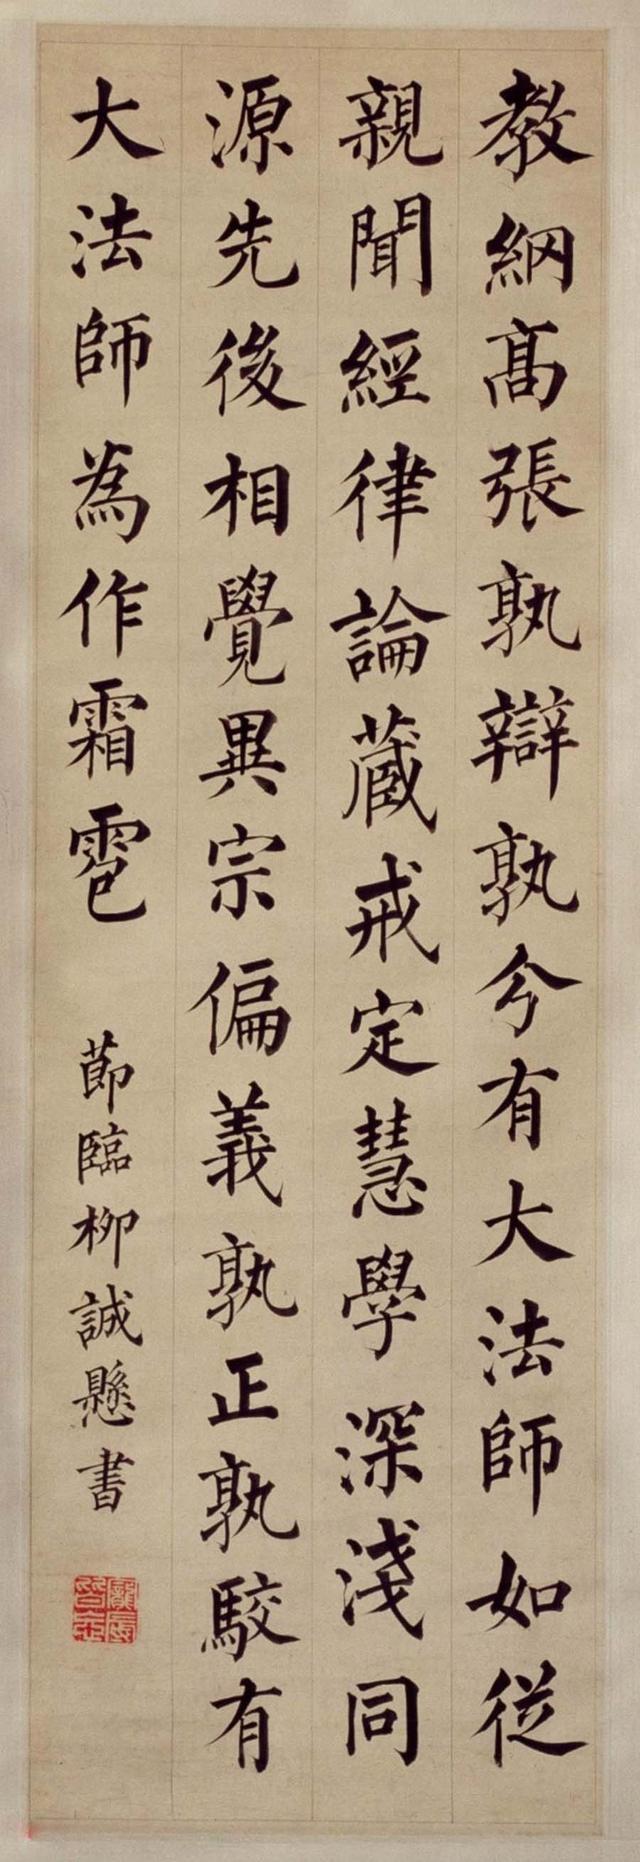 教綱高張孰辯孰分有大法師如從
親聞經律論藏戒定慧學深淺同
源先後相覺異宗偏義孰正孰駮有
大法師為作霜雹
節臨柳誠懸書